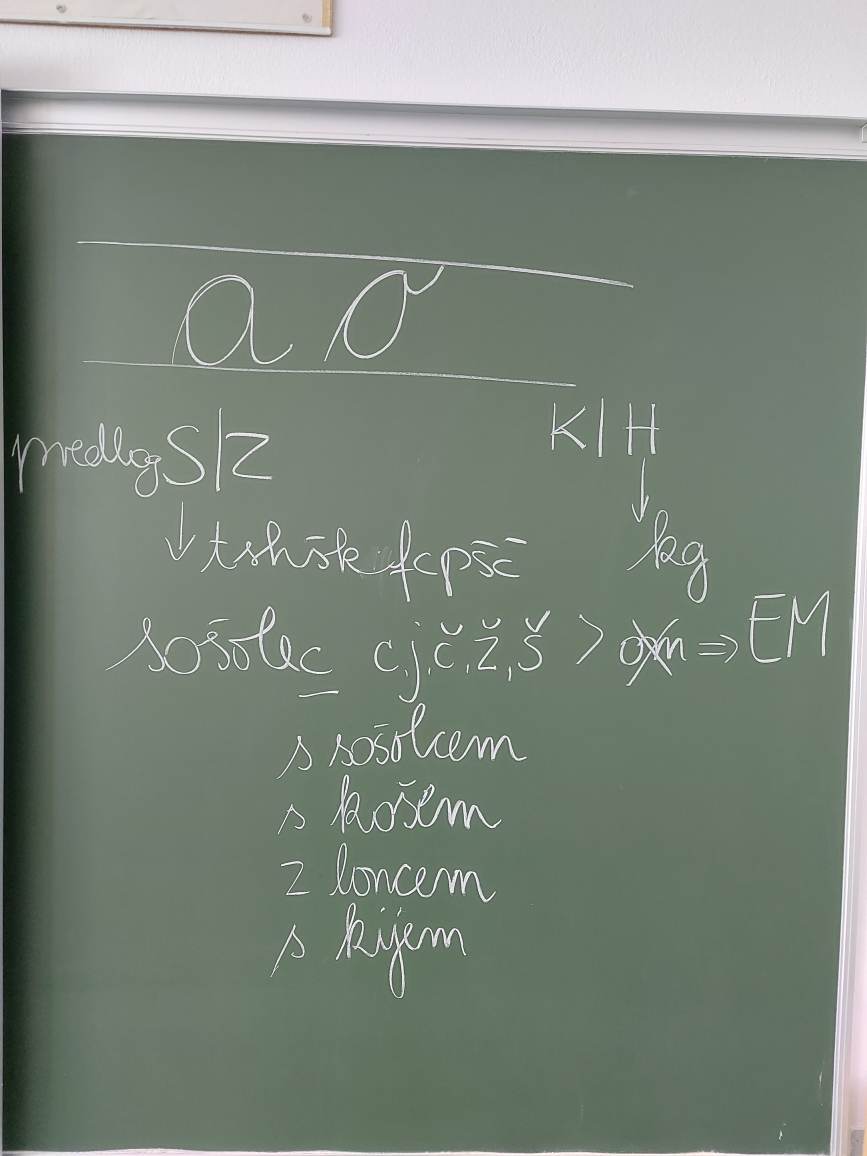 a o
predlog S/Z K/H
↓ tshšk fcpšč kg
sošolec c,j,č,ž,š > om ⇒ EM
s sošolcem
s košem
z loncem
s kijem